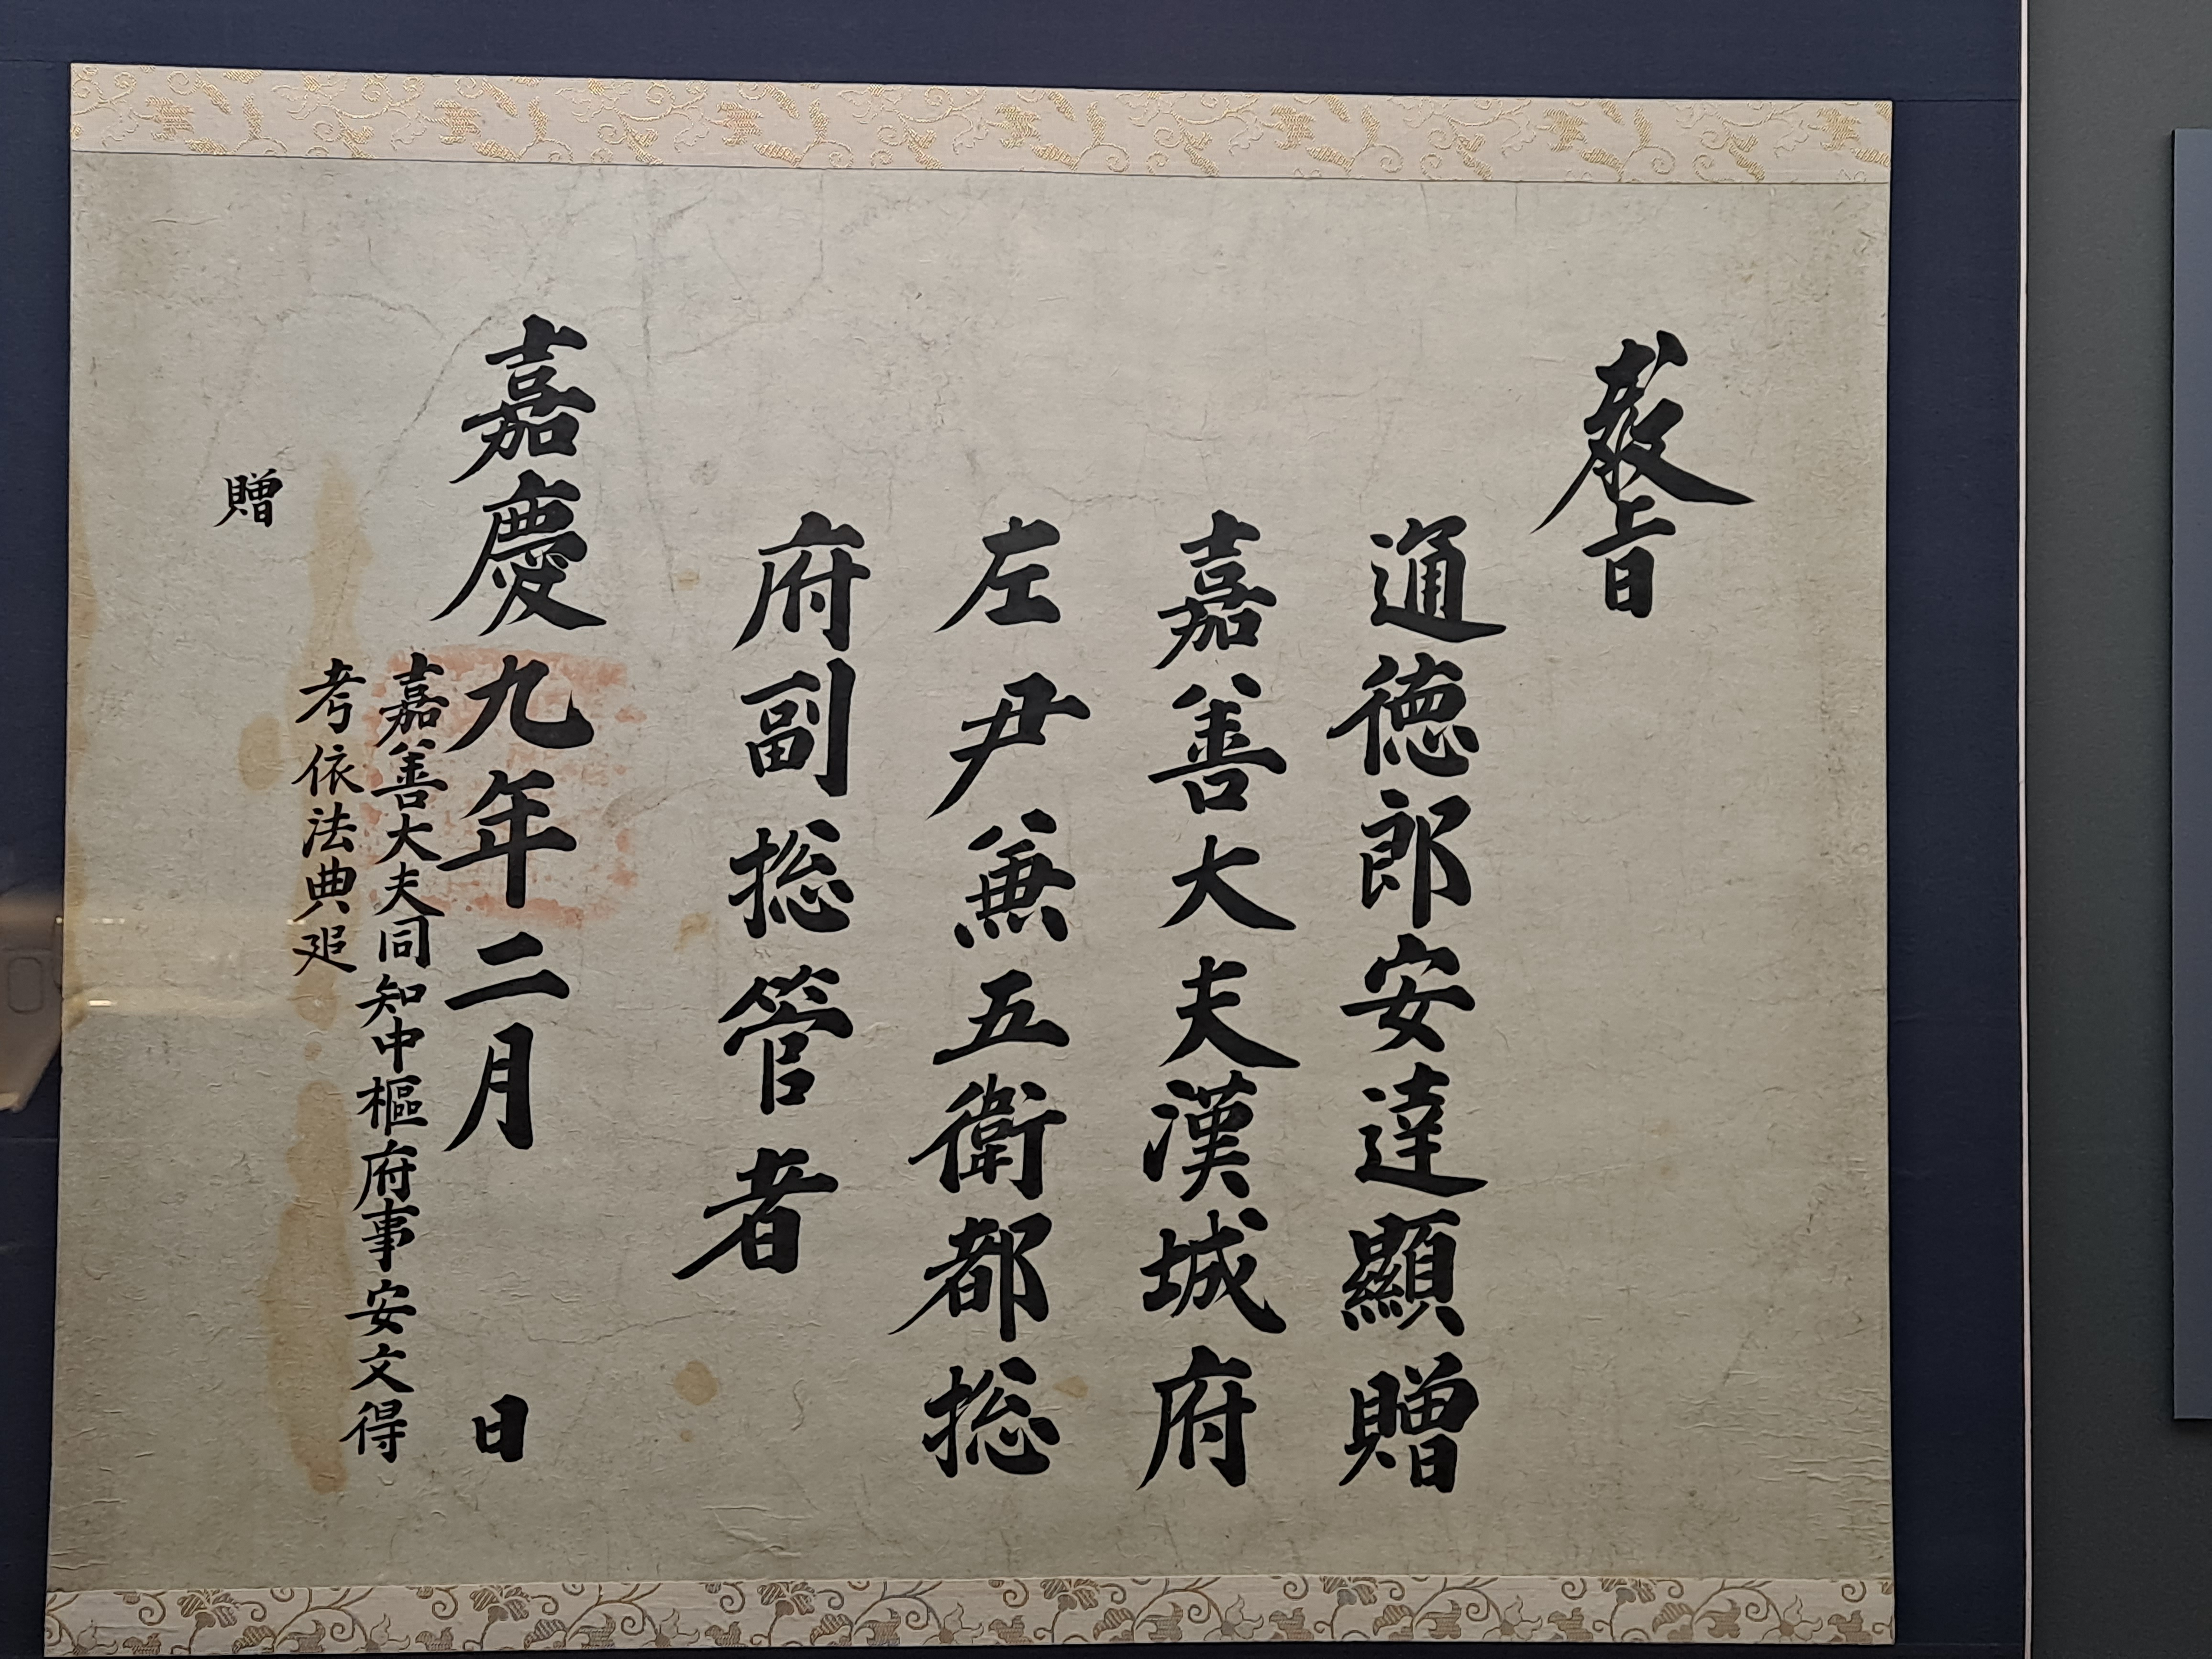 教旨
通徳郎安達顯贈
嘉善大夫漢城府
左尹兼五衛都捴
府副捴管者
嘉慶九年二月 日
嘉善大夫同知中樞府事安文得
考依法典追
贈